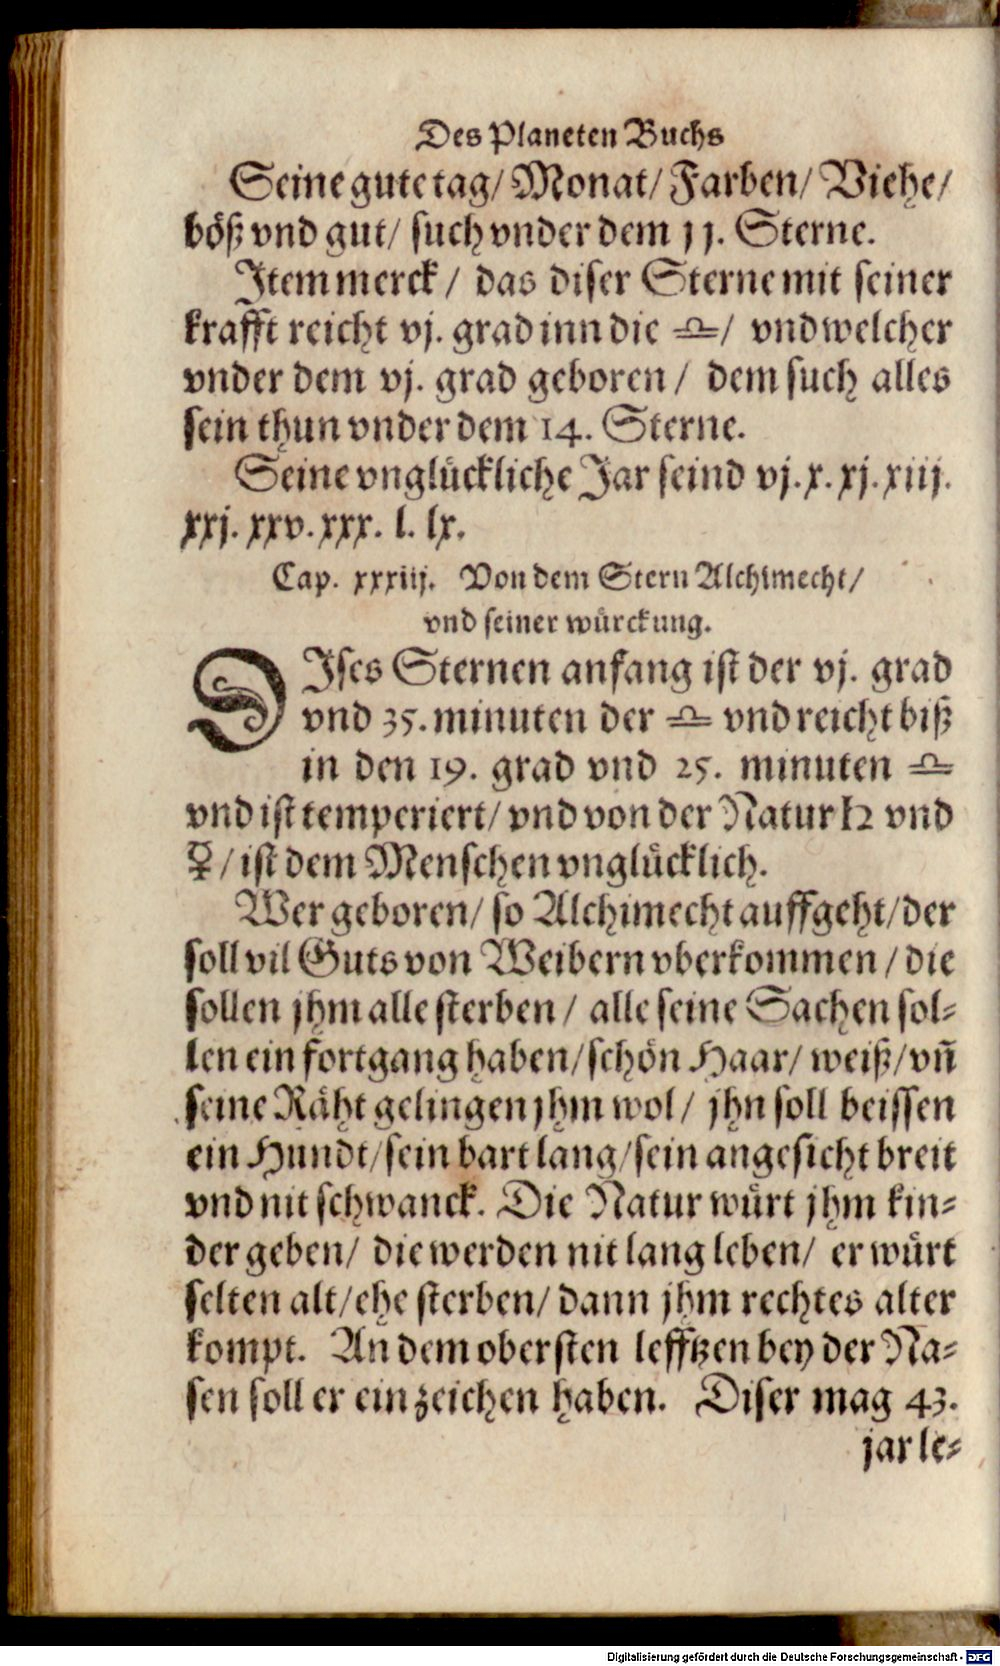 Des Planeten Buchs
Seine gute tag/ Monat/ Farben/ Viehe/
böß vnd gut/ such vnder dem 11. Sterne.
Item merck/ das diser Sterne mit seiner
krafft reicht vj. grad inn die ♎/ vnd welcher
vnder dem vj. grad geboren/ dem such alles
sein thun vnder dem 14. Sterne.
Seine vnglückliche Jar seind vj. x. xj. xiij.
xxj. xxv. xxx. l. lx.
Cap. xxxiij. Von dem Stern Alchimecht/
vnd seiner würckung.
DIses Sternen anfang ist der vj. grad
vnd 35. minuten der ♎ vnd reicht biß
in den 19. grad vnd 25. minuten ♎
vnd ist temperiert/ vnd von der Natur ♄ vnd
☿/ ist dem Menschen vnglücklich.
Wer geboren/ so Alchimecht auffgeht/ der
soll vil Guts von Weibern vberkommen/ die
sollen jhm alle sterben/ alle seine Sachen sol⸗
len ein fortgang haben/ schön Haar/ weiß/ vñ
seine Räht gelingen jhm wol/ jhn soll beissen
ein Hundt/ sein bart lang/ sein angesicht breit
vnd nit schwanck. Die Natur würt jhm kin⸗
der geben/ die werden nit lang leben/ er würt
selten alt/ ehe sterben/ dann jhm rechtes alter
kompt. An dem obersten lefftzen bey der Na⸗
sen soll er ein zeichen haben. Diser mag 43.
jar le⸗
Digitalisierung gefördert durch die Deutsche Forschungsgemeinschaft - DFG